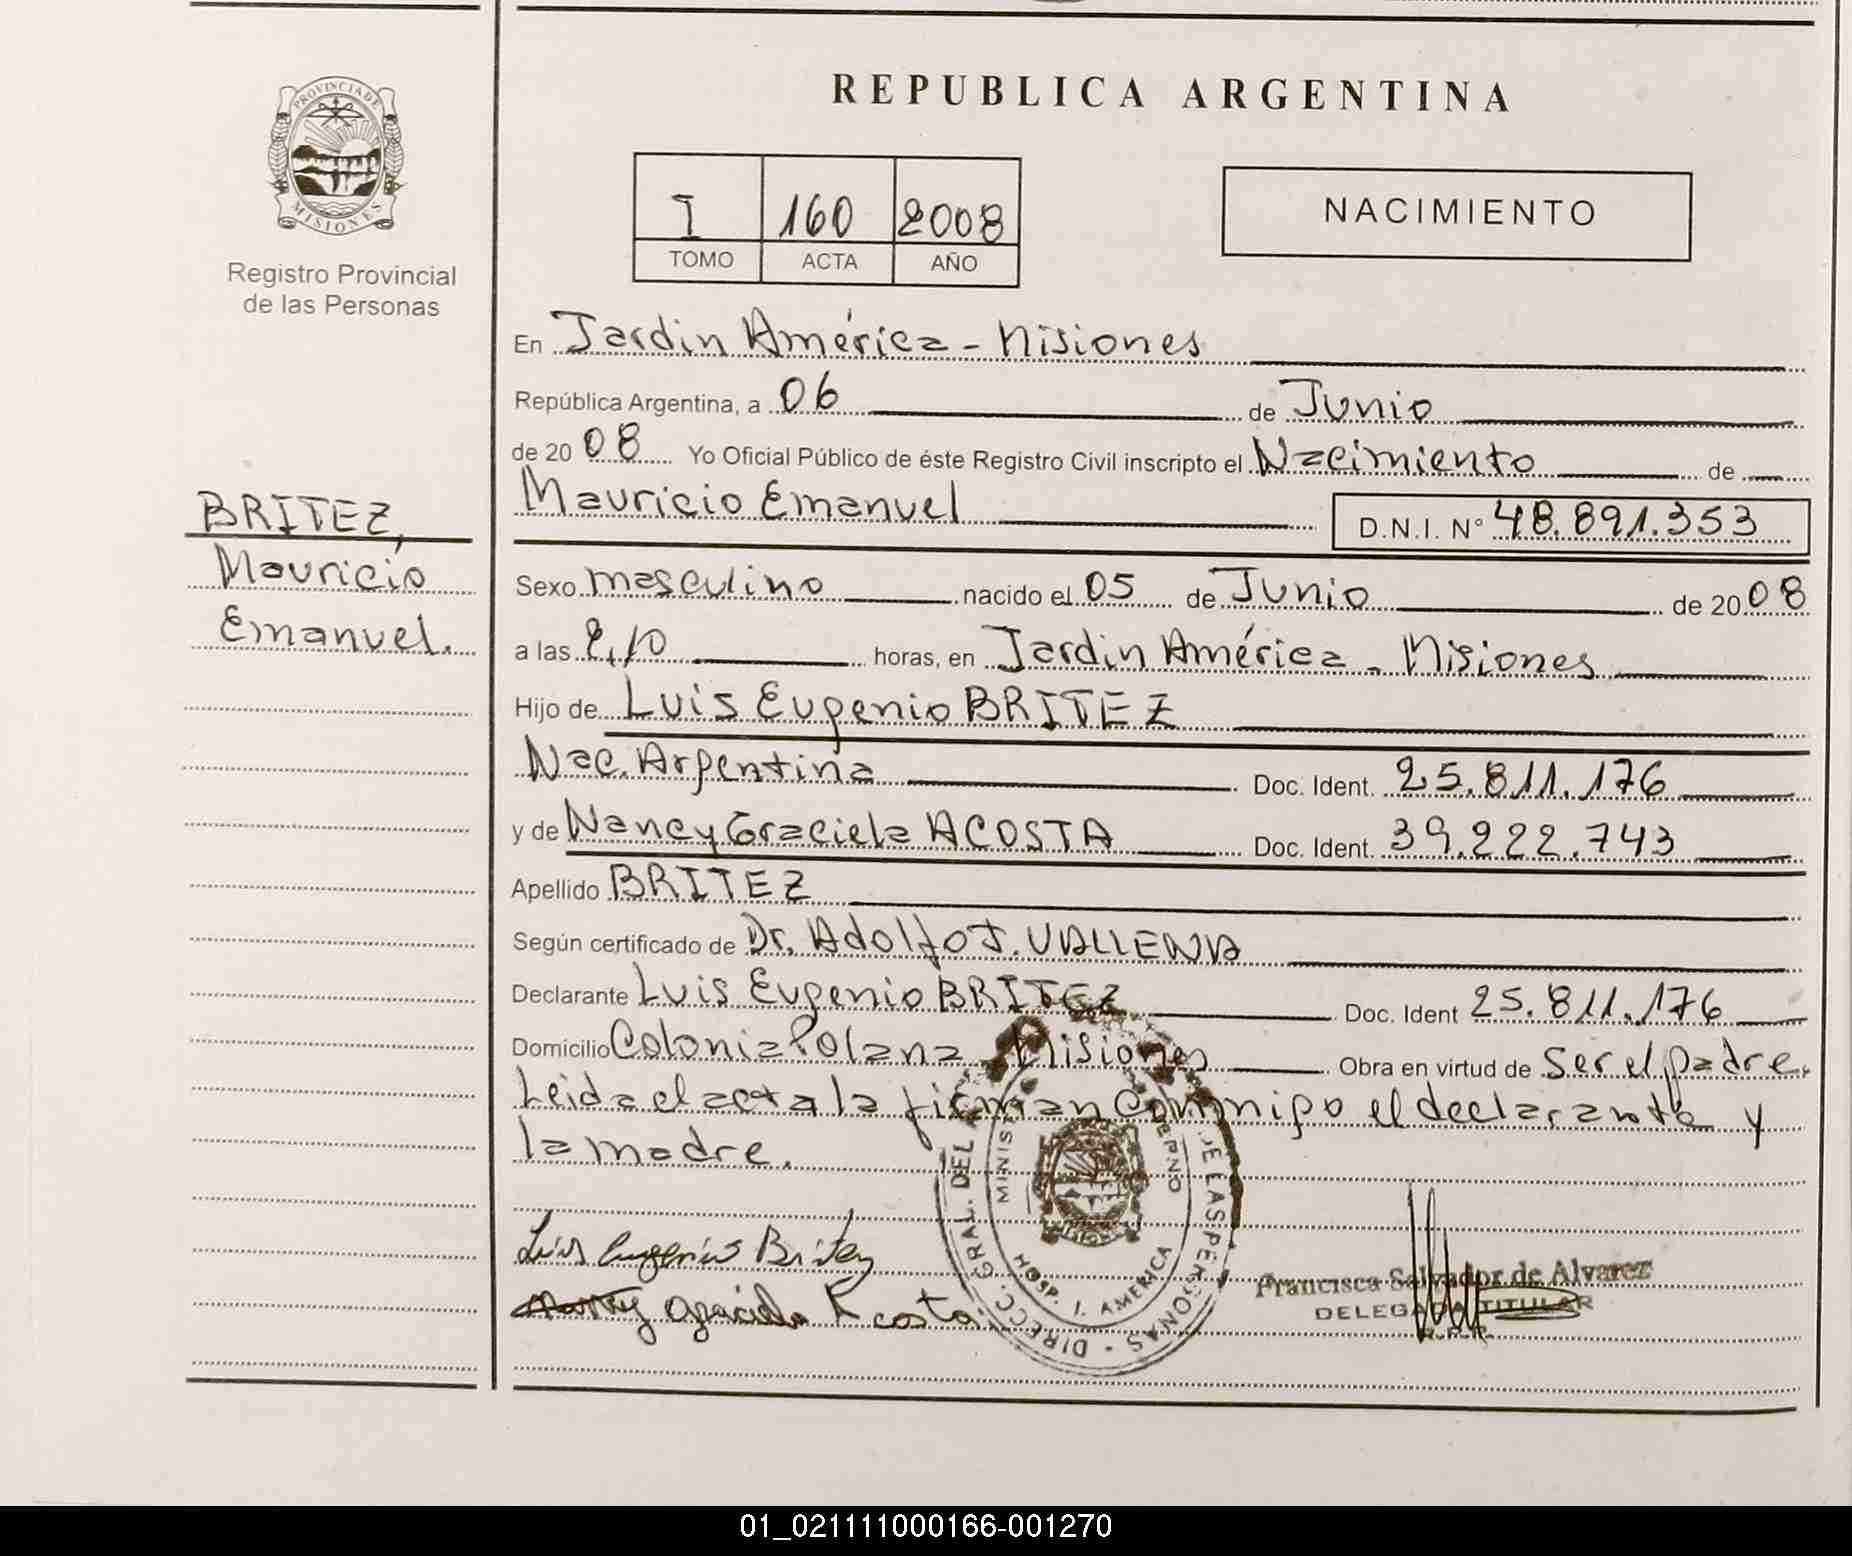 REPUBLICA ARGENTINA
PROVINCIA DE
MISIONES
Registro Provincial
de las Personas
I 160 2008
TOMO ACTA AÑO
NACIMIENTO
En Jardin América - Misiones
República Argentina, a 06 de Junio
de 2008 Yo Oficial Público de éste Registro Civil inscripto el Nacimiento de
Mauricio Emanuel D.N.I. N° 48.891.353
BRITEZ,
Mauricio
Emanuel.
Sexo masculino nacido el 05 de Junio de 2008
a las 2,10 horas, en Jardin América - Misiones
Hijo de Luis Eugenio BRITEZ
Nac. Argentina Doc. Ident. 25.811.176
y de Nancy Graciela ACOSTA Doc. Ident. 39.222.743
Apellido BRITEZ
Según certificado de Dr. Adolfo J.
Declarante Luis Eugenio BRITEZ Doc. Ident 25.811.176
Domicilio Colonia Polana Misiones Obra en virtud de Ser el padre.
Leida el acta la firman Conmigo el declarante y
la madre.
Luis Eugenio Britez
Acosta
DIRECC. GRAL. DEL DE LAS PERSONAS
HOSP. J. AMERICA
Francisca Salvador de Alvarez
DELEGADA TITULAR
R.P.P.
01_021111000166-001270